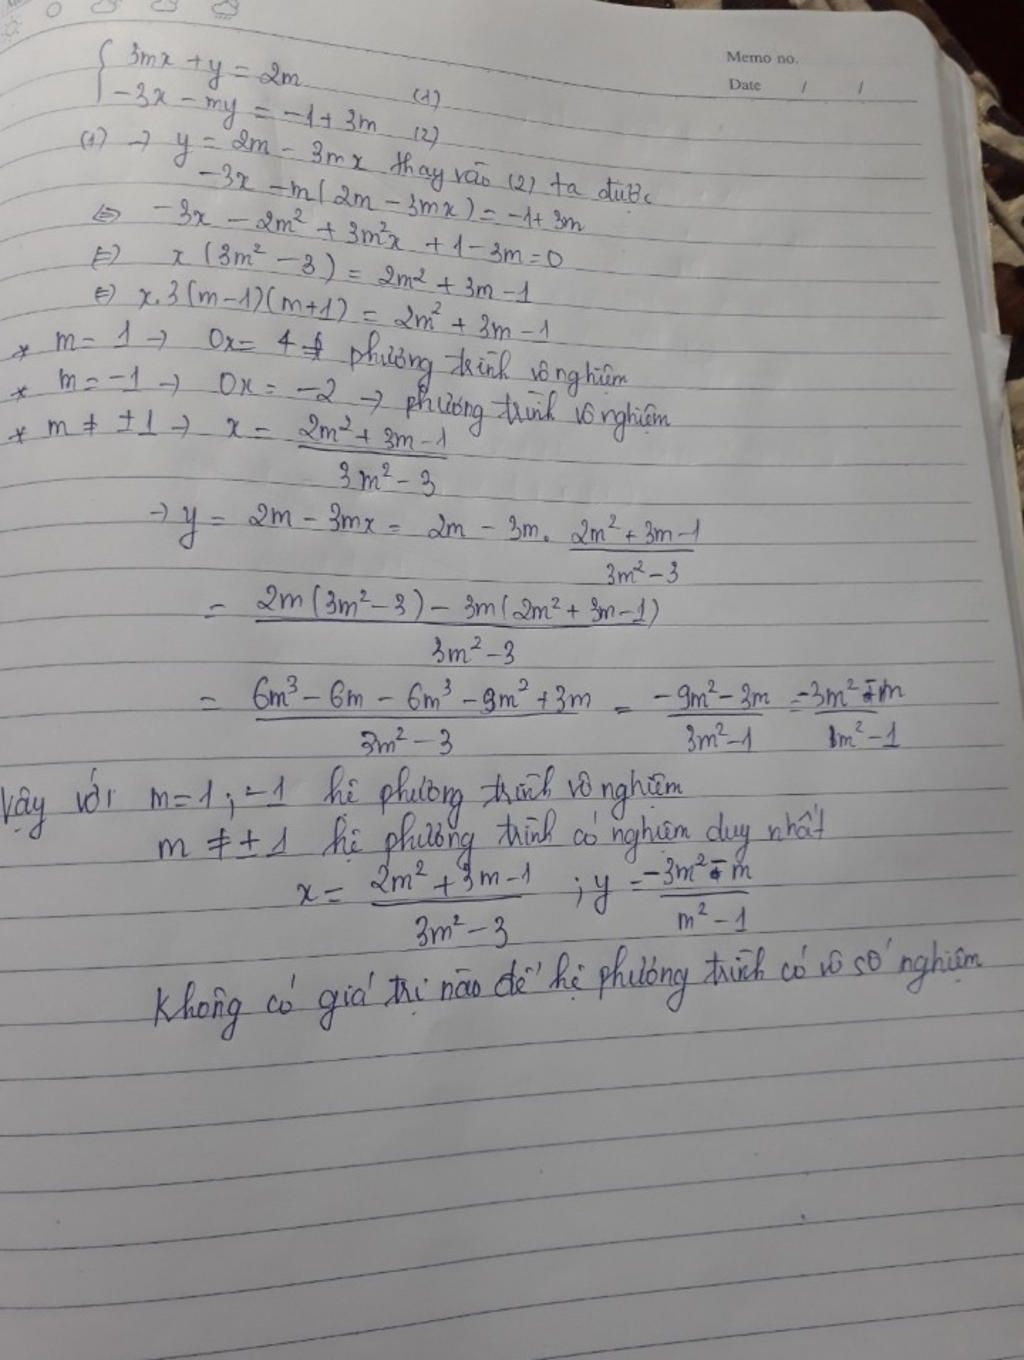 Memo no.
Date / /
3mx + y = 2m (1)
-3x - my = -1 + 3m (2)
(1) → y = 2m - 3mx thay vào (2) ta được
-3x - m(2m - 3mx) = -1 + 3m
⇔ -3x - 2m² + 3m²x + 1 - 3m = 0
⇔ x (3m² - 3) = 2m² + 3m - 1
⇔ x.3(m-1)(m+1) = 2m² + 3m - 1
* m = 1 → 0x = 4 → phương trình vô nghiệm
* m = -1 → 0x = -2 → phương trình vô nghiệm
* m ≠ ±1 → x = (2m² + 3m - 1)/(3m² - 3)
→ y = 2m - 3mx = 2m - 3m. (2m² + 3m - 1)/(3m² - 3)
= (2m(3m² - 3) - 3m(2m² + 3m - 1))/(3m² - 3)
= (6m³ - 6m - 6m³ - 9m² + 3m)/(3m² - 3) = (-9m² - 3m)/(3m² - 1) = (-3m² - m)/(m² - 1)
Vậy với m = 1 ; -1 hệ phương trình vô nghiệm
m ≠ ± 1 hệ phương trình có nghiệm duy nhất
x = (2m² + 3m - 1)/(3m² - 3) ; y = (-3m² - m)/(m² - 1)
Không có giá trị nào để hệ phương trình có vô số nghiệm